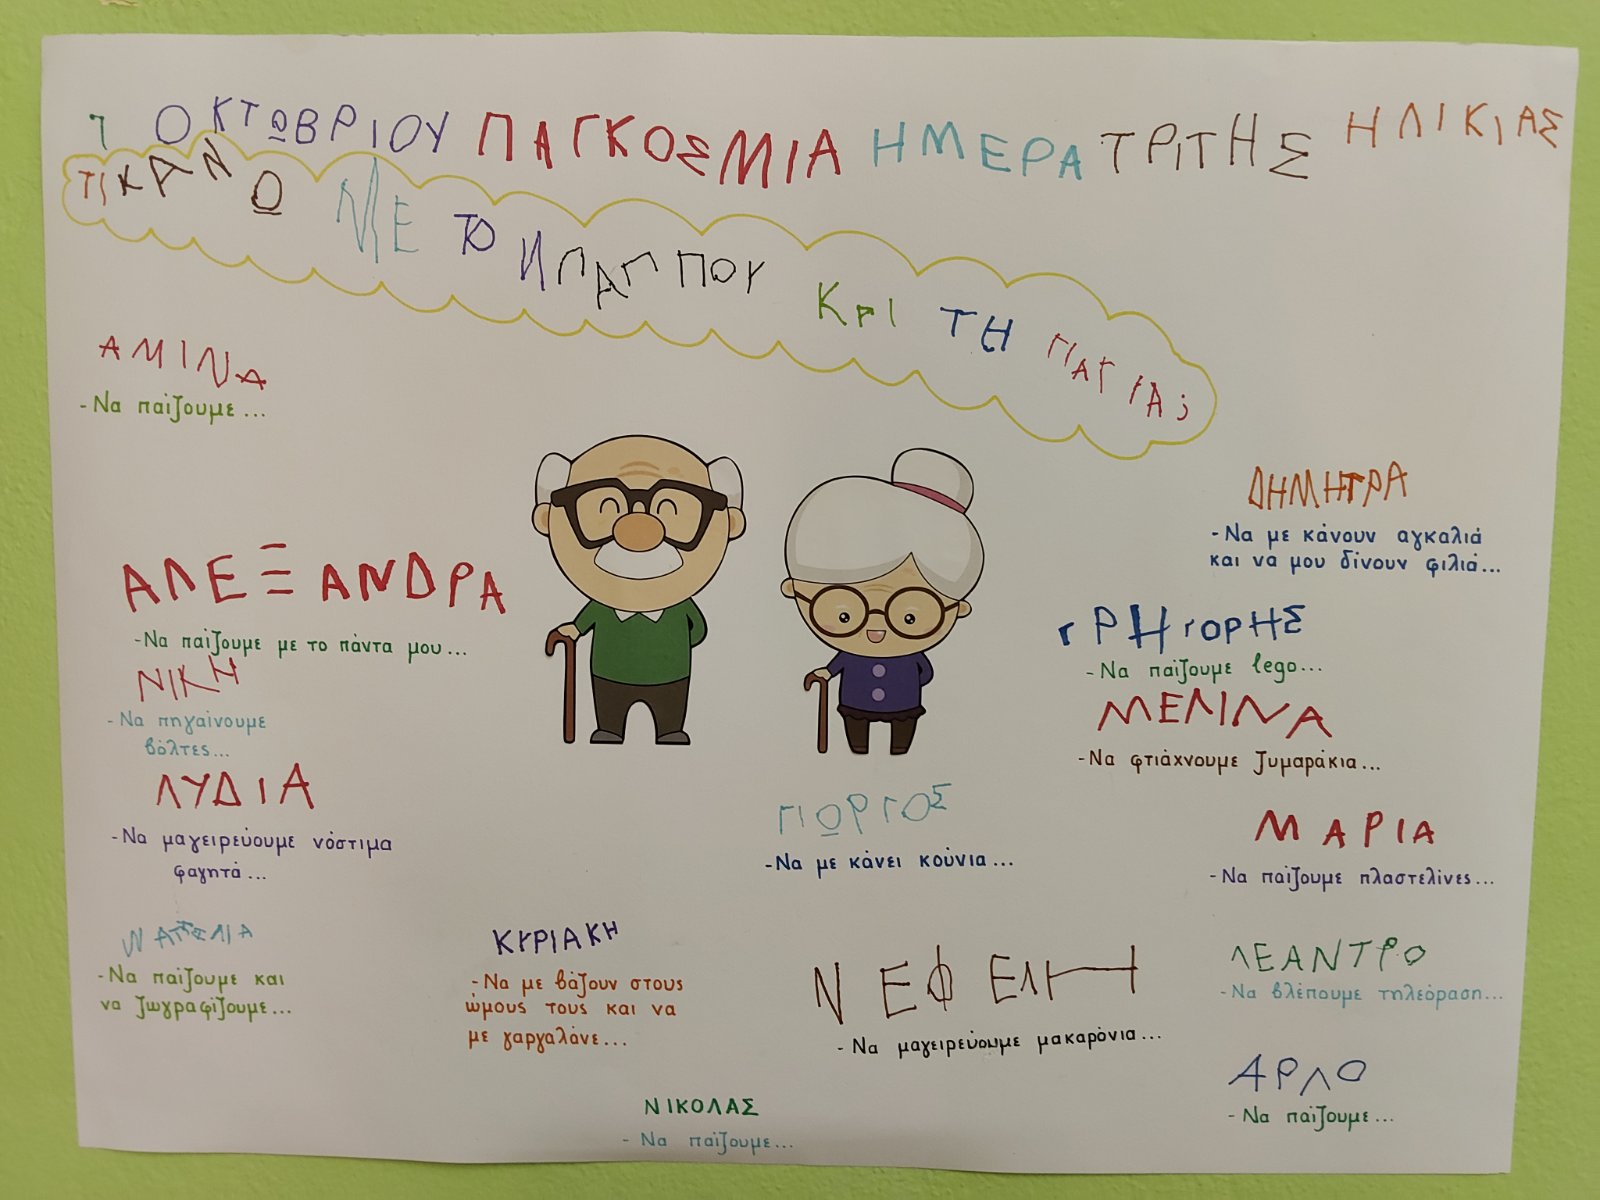 1 ΟΚΤΩΒΡΙΟΥ ΠΑΓΚΟΣΜΙΑ ΗΜΕΡΑ ΤΡΙΤΗΣ ΗΛΙΚΙΑΣ
ΤΙ ΚΑΝΩ ΜΕ ΤΟΝ ΠΑΠΠΟΥ ΚΑΙ ΤΗ ΓΙΑΓΙΑ;
ΑΜΙΝΑ
- Να παίζουμε...
ΑΛΕΞΑΝΔΡΑ
- Να παίζουμε με το πάντα μου...
ΝΙΚΗ
- Να πηγαίνουμε
βόλτες...
ΛΥΔΙΑ
- Να μαγειρεύουμε νόστιμα
φαγητά...
- Να παίζουμε και
να ζωγραφίζουμε...
ΚΥΡΙΑΚΗ
- Να με βάζουν στους
ώμους τους και να
με γαργαλάνε...
ΝΙΚΟΛΑΣ
- Να παίζουμε...
ΓΙΩΡΓΟΣ
- Να με κάνει κούνια...
ΝΕΦΕΛΗ
- Να μαγειρεύουμε μακαρόνια...
ΔΗΜΗΤΡΑ
- Να με κάνουν αγκαλιά
και να μου δίνουν φιλιά...
ΓΡΗΓΟΡΗΣ
- Να παίζουμε lego...
ΜΕΛΙΝΑ
- Να φτιάχνουμε ζυμαράκια...
ΜΑΡΙΑ
- Να παίζουμε πλαστελίνες...
ΛΕΑΝΤΡΟ
- Να βλέπουμε τηλεόραση...
ΑΡΛΟ
- Να παίζουμε...